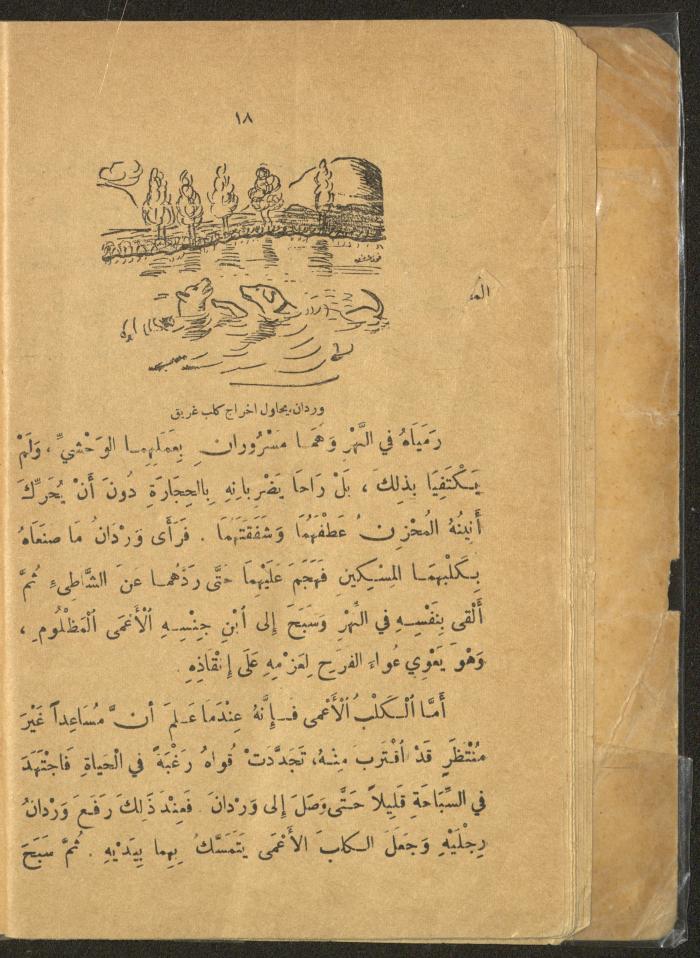 ١٨
الم
وردان، يحاول اخراج كلب غريق
رَمَيَاهُ في النَّهْرِ وَهُمَا مَسْرُورانِ بِعَمَلِهِمَا الوَحْشيِّ ، وَلَمْ
يَكْتَفِيَا بذلِكَ ، بَلْ رَاحَا يَضْرِبانِهِ بِالحِجَارَةِ دُونَ أَنْ يُحَرِّكَ
أَنِينُهُ المُحْزِنُ عَطْفَهُمَا وَشَفَقَتَهُمَا . فَرَأَى وَرْدَانُ مَا صَنَعَاهُ
بِكَلْبِهِمَا المِسْكِينِ فَهَجَمَ عَلَيْهِمَا حَتَّى رَدَّهُمَا عَنَ الشَّاطِىءِ ثُمَّ
أَلْقى بِنَفْسِهِ في النَّهْرِ وَسَبَحَ إِلى ٱبْنِ جِنْسِهِ ٱلْأَعْمَى ٱلْمَظْلُومِ ،
وَهْوَ يَعْوِي عُواءَ الفَرَحِ لِعَزْمِهِ عَلَى إِنْقَاذِهِ .
أَمَّا ٱلْكَلْبُ ٱلْأَعْمى فَإِنَّهُ عِنْدَمَا عَلِمَ أَنَّ مُسَاعِداً غَيْرَ
مُنْتَظَرٍ قَدْ ٱقْتَرَبَ مِنْهُ، تَجَدَّدَتْ قُوَاهُ رَغْبَةً في الْحَياةِ فَاجْتَهَدَ
في السِّبَاحَةِ قَلِيلاً حَتَّى وَصَلَ إِلى وَرْدَانَ . فَعِنْدَ ذَلِكَ رَفَعَ وَرْدَانُ
رِجْلَيْهِ وَجَعَلَ الكلبَ الأَعْمَى يَتَمَسَّكُ بِهِما بِيَدَيْهِ . ثُمَّ سَبَحَ